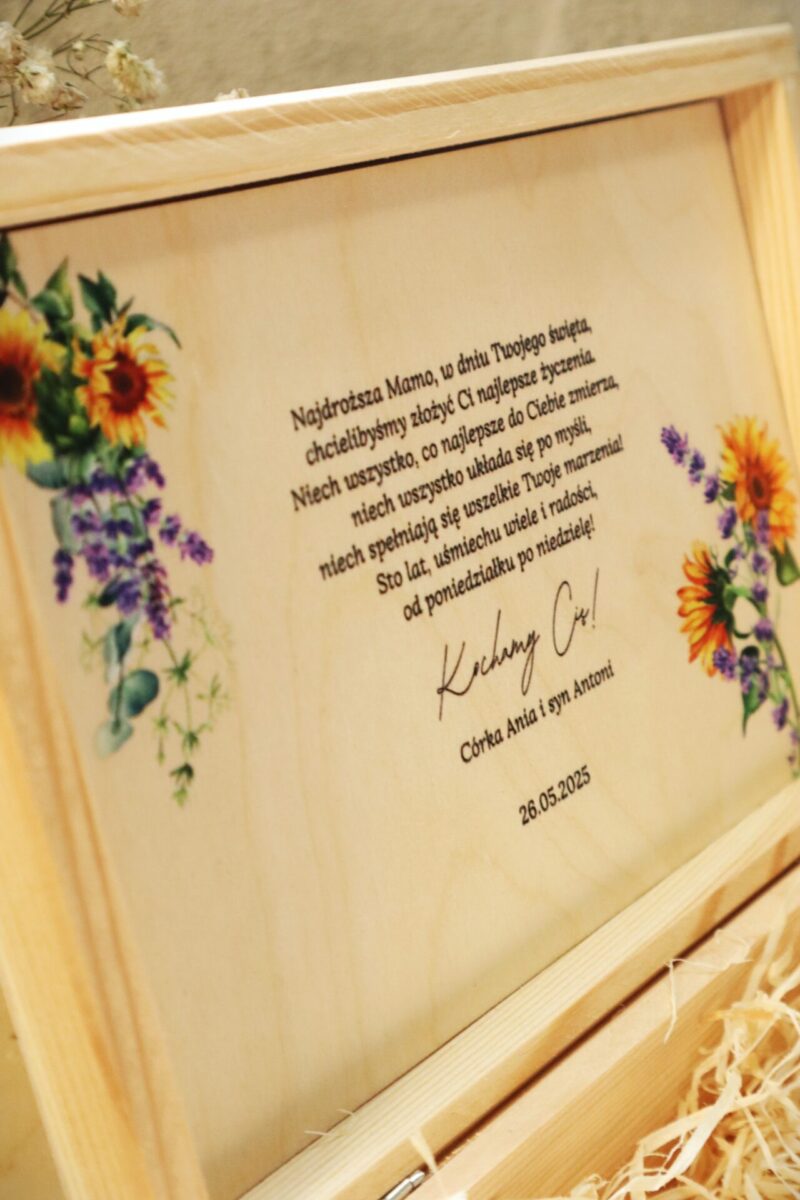 Najdroższa Mamo, w dniu Twojego święta,
chcielibyśmy złożyć Ci najlepsze życzenia.
Niech wszystko, co najlepsze do Ciebie zmierza,
niech wszystko układa się po myśli,
niech spełniają się wszelkie Twoje marzenia!
Sto lat, uśmiechu wiele i radości,
od poniedziałku po niedzielę!
Kochamy Cię!
Córka Ania i syn Antoni
26.05.2025